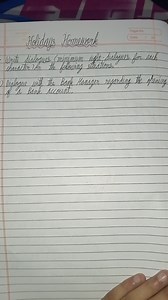 Holidays Homework
Write dialogues (minimum eight dialogues for each
character) in the following situations
1) Dialogue with the Bank Manager regarding the opening
of a bank account.